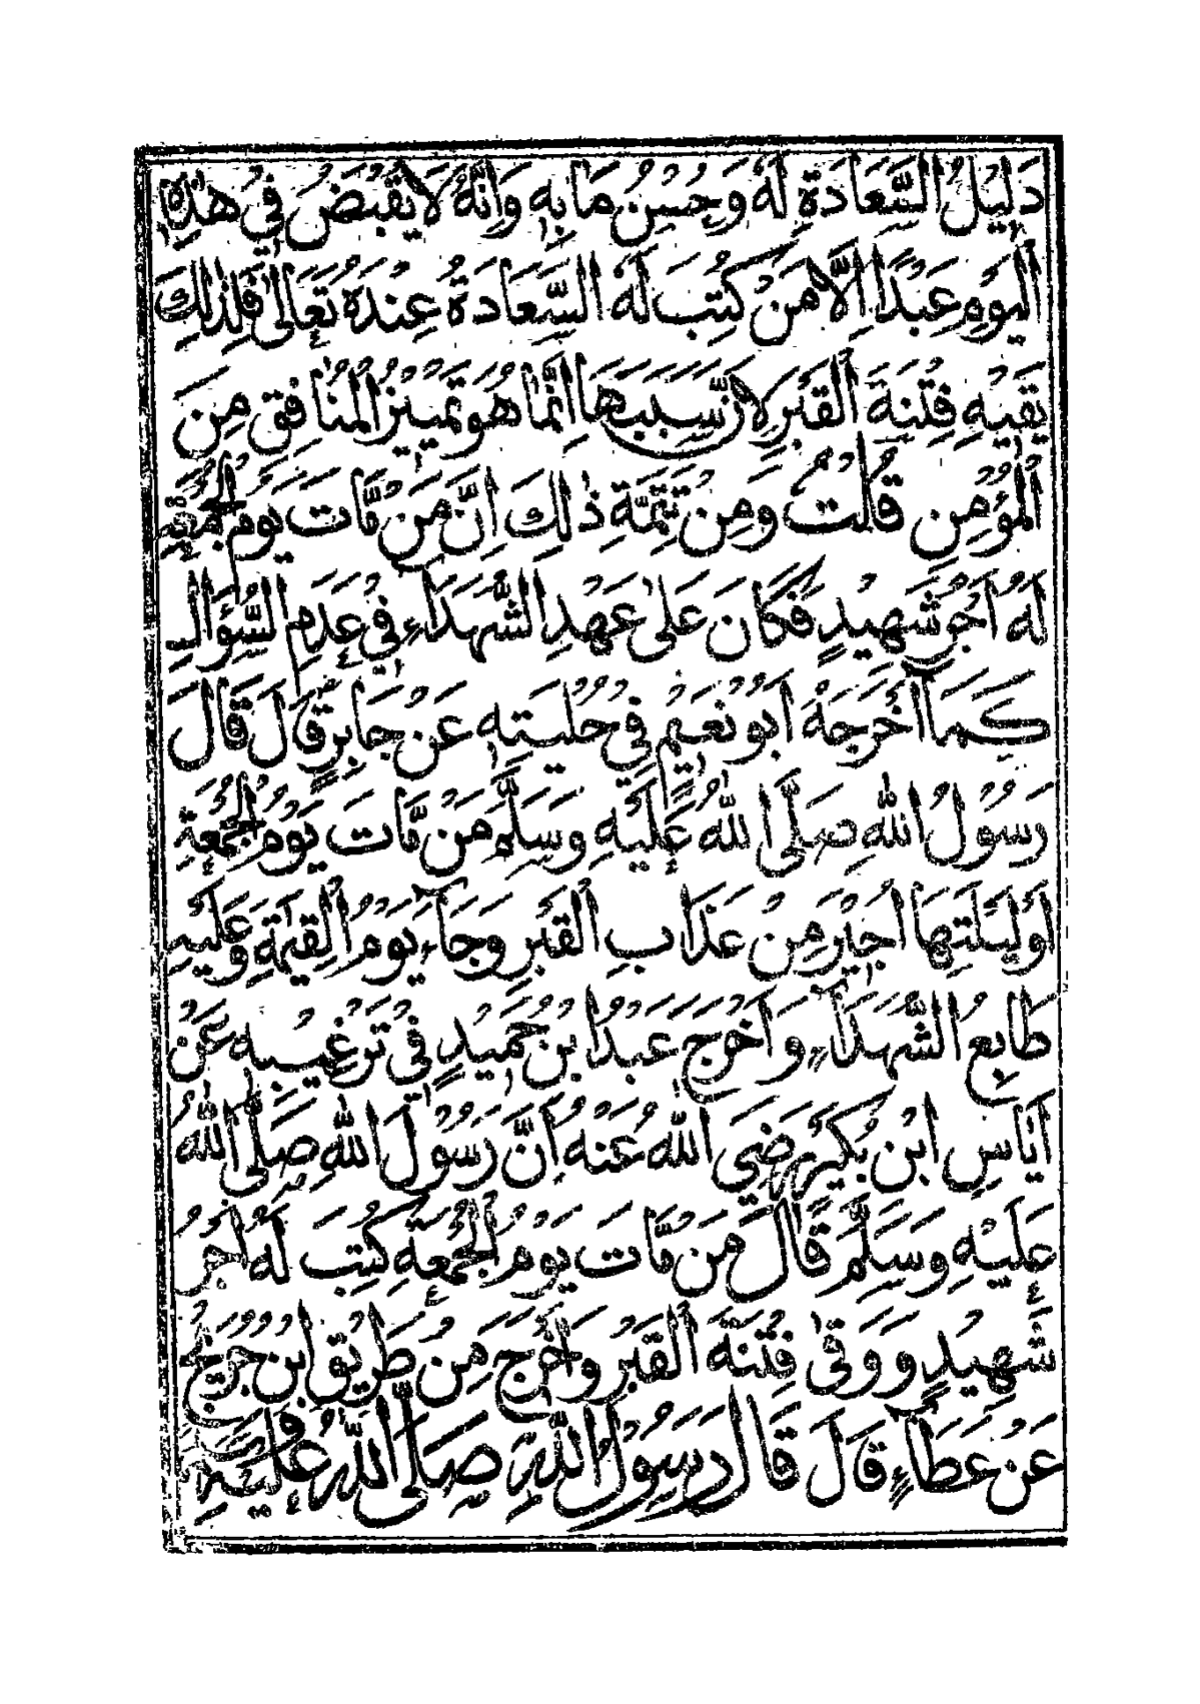 دَلِيْلُ السَّعَادَةِ لَهُ وَحُسْنِ مَابِهِ وَاِنَّهُ لَا يُقْبَضُ فِيْ هٰذِهِ
الْيَوْمِ عَبْدًا اِلَّا مَنْ كُتِبَ لَهُ السَّعَادَةُ عِنْدَهُ تَعَالٰى فَلِذٰلِكَ
يَقِيْهِ فِتْنَةَ الْقَبْرِ لِاَنَّ سَبَبَهَا اِنَّمَا هُوَ تَمْيِيْزُ الْمُنَافِقِ مِنَ
الْمُؤْمِنِ قُلْتُ وَمِنْ تَتِمَّةِ ذٰلِكَ اِنَّ مَنْ مَّاتَ يَوْمَ الْجُمُعَةِ
لَهُ اَجْرُ شَهِيْدٍ فَكَانَ عَلٰى عَهْدِ الشُّهَدَاءِ فِيْ عَدَمِ السُّؤَالِ
كَمَا اَخْرَجَهُ اَبُوْ نُعَيْمٍ فِيْ حُلِيَتِهِ عَنْ جَابِرٍ قَالَ قَالَ
رَسُوْلُ اللهِ صَلَّى اللهُ عَلَيْهِ وَسَلَّمَ مَنْ مَّاتَ يَوْمَ الْجُمُعَةِ
اَوْ لَيْلَتِهَا اُجِيْرَ مِنْ عَذَابِ الْقَبْرِ وَجَاءَ يَوْمَ الْقِيٰمَةِ وَعَلَيْهِ
طَابِعُ الشُّهَدَاءِ وَاَخْرَجَ عَبْدُ ابْنُ حُمَيْدٍ فِيْ تَرْغِيْبِهِ عَنْ
اَيَاسِ ابْنِ بُكَيْرٍ رَضِيَ اللهُ عَنْهُ اِنَّ رَسُوْلَ اللهِ صَلَّى اللهُ
عَلَيْهِ وَسَلَّمَ قَالَ مَنْ مَّاتَ يَوْمَ الْجُمُعَةِ كُتِبَ لَهُ اَجْرُ
شَهِيْدٍ وَوُقِيَ فِتْنَةَ الْقَبْرِ وَاَخْرَجَ مِنْ طَرِيْقِ ابْنِ جُرَيْجٍ
عَنْ عَطَاءٍ قَالَ قَالَ رَسُوْلُ اللهِ صَلَّى اللهُ عَلَيْهِ